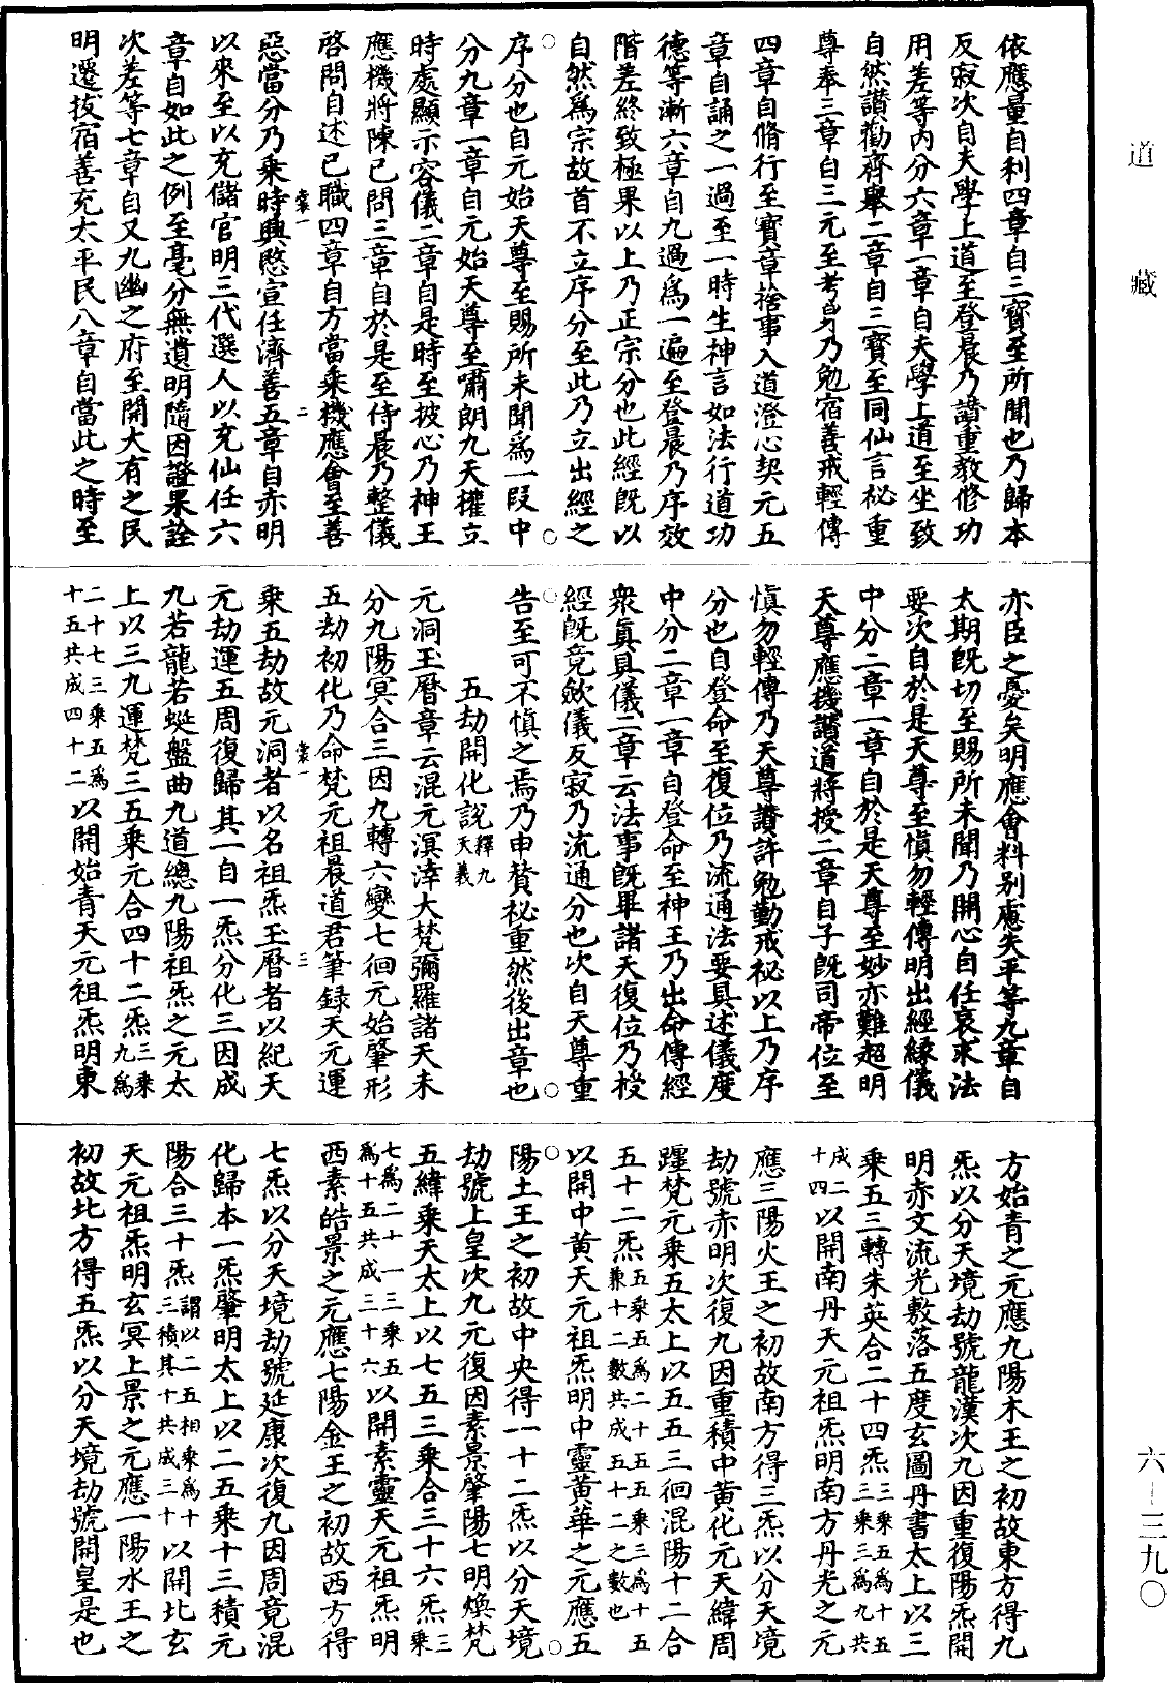 依應量自利四章自三寶至所聞也乃歸本
反寂次自夫學上道至登晨乃讚重教修功
用差等内分六章一章自夫學上道至坐致
自然讚勸齊舉二章自三寶至同仙言祕重
尊奉三章自三元至考身乃勉宿善戒輕傳
四章自脩行至寶章捨事入道澄心契元五
章自誦之一過至一時生神言如法行道功
德等漸六章自九過爲一遍至登晨乃序效
階差終致極果以上乃正宗分也此經旣以
自然爲宗故首不立序分至此乃立出經之
序分也自元始天尊至賜所未聞爲一段中
分九章一章自元始天尊至嘯朗九天權立
時處顯示容儀二章自是時至披心乃神王
應機將陳已問三章自於是至侍晨乃整儀
啓問自述已職四章自方當乘機應會至善
惡當分乃乘時興愍宣任濟善五章自亦明
以來至以充儲官明三代選人以充仙任六
章自如此之例至毫分無遺明隨因證果詮
次差等七章自又九幽之府至開大有之民
明遷拔宿善充太平民八章自當此之時至
亦臣之憂矣明應會料别慮失平等九章自
太期旣切至賜所未聞乃開心自任哀求法
要次自於是天尊至愼勿輕傳明出經緣儀
中分二章一章自於是天尊至妙亦難超明
天尊應機諧道將授二章自子旣司帝位至
愼勿輕傳乃天尊讚許勉勤戒祕以上乃序
分也自登命至復位乃流通法要具述儀度
中分二章一章自登命至神王乃出命傳經
衆眞具儀二章云法事旣畢諸天復位乃授
經旣竟斂儀反寂乃流通分也次自天尊重
告至可不愼之焉乃申賛祕重然後出章也
五劫開化説釋九天義
元洞玉曆章云混元溟涬大梵彌羅諸天未
分九陽冥合三因九轉六變七徊元始肇形
五劫初化乃命梵元祖晨道君筆録天元運
乘五劫故元洞者以名祖炁玉曆者以紀天
元劫運五周復歸其一自一炁分化三因成
九若龍若蜒盤曲九道總九陽祖炁之元太
上以三九運梵三五乘元合四十二炁三乘九爲
二十七三乘五爲十五共成四十二以開始青天元祖炁明東
方始青之元應九陽木王之初故東方得九
炁以分天境劫號龍漢次九因重復陽炁開
明赤文流光敷落五度玄圖丹書太上以三
乘五三轉朱英合二十四炁三乘五爲十五三乘三爲九共
成二十四以開南丹天元祖炁明南方丹光之元
應三陽火王之初故南方得三炁以分天境
劫號赤明次復九因重積中黄化元天緯周
躔梵元乘五太上以五五三徊混陽十二合
五十二炁五乘五爲二十五五乘三爲十五兼十二數共成五十二之數也
以開中黄天元祖炁明中靈黄華之元應五
陽土王之初故中央得一十二炁以分天境
劫號上皇次九元復因素景肇陽七明煥梵
五緯乘天太上以七五三乘合三十六炁三乘
七爲二十一三乘五爲十五共成三十六以開素靈天元祖炁明
西素皓景之元應七陽金王之初故西方得
七炁以分天境劫號延康次復九因周竟混
化歸本一炁肇明太上以二五乘十三積元
陽合三十炁謂以二五相乘爲十三積其十共成三十以開北玄
天元祖炁明玄冥上景之元應一陽水王之
初故北方得五炁以分天境劫號開皇是也
裳一
二
裳一
三
道藏
六-三九〇